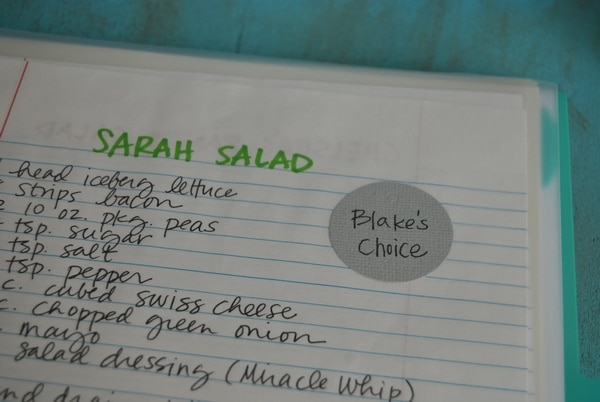 SARAH SALAD
head iceberg lettuce
strips bacon
10 oz. pkg. peas
tsp. sugar
tsp. salt
tsp. pepper
c. cubed swiss cheese
c. chopped green onion
mayo
salad dressing (Miracle Whip)
Blake's
Choice